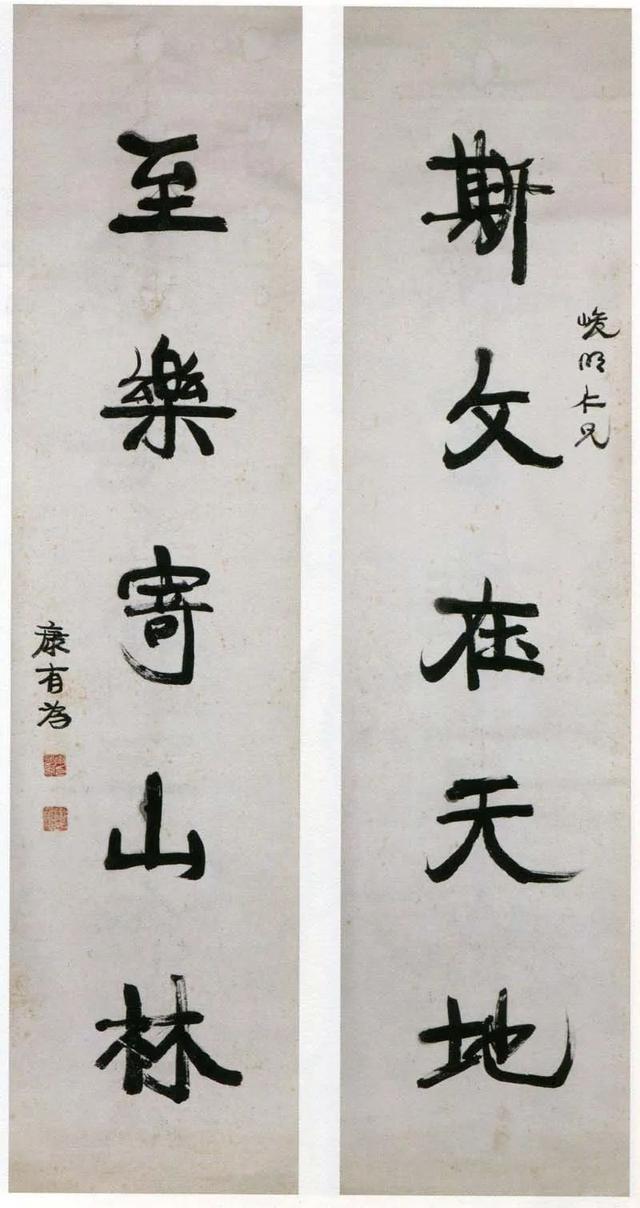 斯文在天地
峻明仁兄
至樂寄山林
康有為